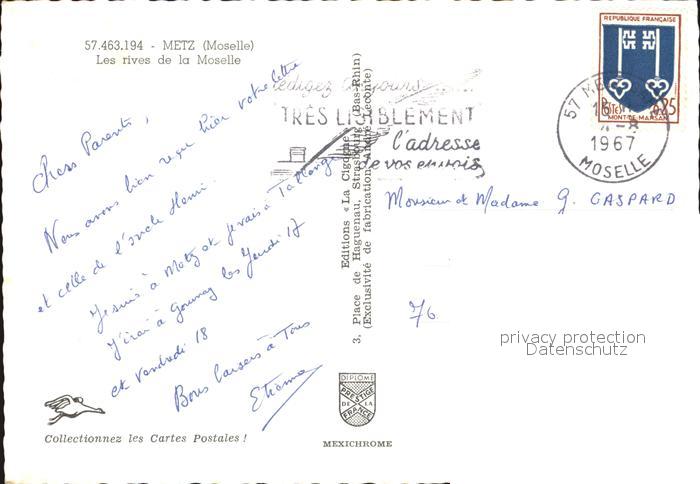 57.463.194 - METZ (Moselle)
Les rives de la Moselle
Chers Parents,
Nous avons bien reçu hier votre lettre
et celle de l'oncle Henri.
Je suis à Metz et je vais à
J'irai à Gournay les Jeudi 17
et vendredi 18
Bons baisers à Tous
Etienne
Collectionnez les Cartes Postales !
Editions «La Cigogne»
3, Place de Haguenau, Strasbourg (Bas-Rhin)
(Exclusivité de fabrication André Leconte)
DIPLOME
PRESTIGE
DE LA
FRANCE
MEXICHROME
rédigez toujours
TRÈS LISIBLEMENT
l'adresse
de vos envois
REPUBLIQUE FRANÇAISE
POSTES 0,25
MONT-DE-MARSAN
57 METZ
1967
MOSELLE
Monsieur et Madame G. GASPARD
76
privacy protection
Datenschutz